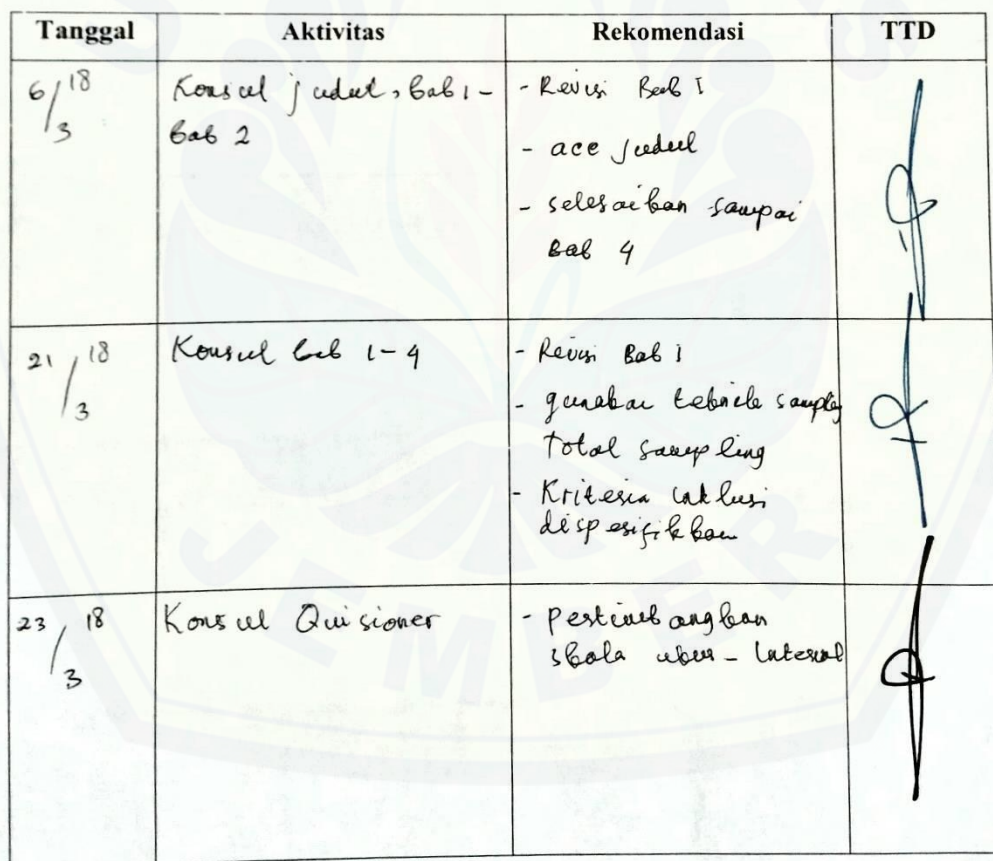 Tanggal Aktivitas Rekomendasi TTD
6/3 18 Konsul judul, Bab 1 - - Revisi Bab I
Bab 2
- acc judul
- selesaikan sampai
Bab 4
21/3 18 Konsul bab 1-4 - Revisi Bab I
- gunakan teknik sampling
total sampling
- Kriteria inklusi
dispesifikkan
23/3 18 Konsul Quisioner - Pertimbangkan
skala ukur - interval
JEMBER